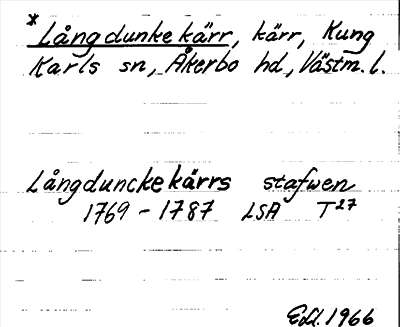 * Långdunkekärr, kärr, Kung
Karls sn, Åkerbo hd, Västm. l.
Långdunckekärrs stafwen
1769 - 1787 LSA T²⁷
1966